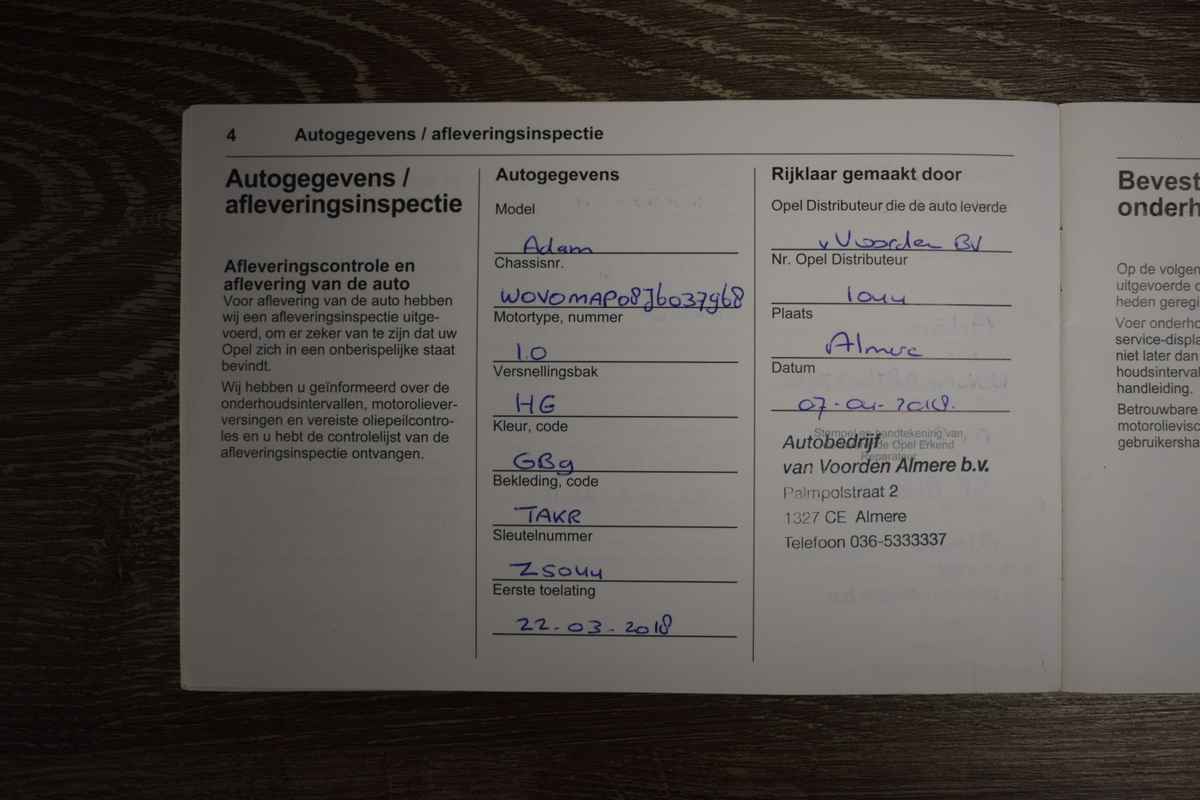 4 Autogegevens / afleveringsinspectie
Autogegevens /
afleveringsinspectie
Afleveringscontrole en
aflevering van de auto
Voor aflevering van de auto hebben
wij een afleveringsinspectie uitge-
voerd, om er zeker van te zijn dat uw
Opel zich in een onberispelijke staat
bevindt.
Wij hebben u geïnformeerd over de
onderhoudsintervallen, motoroliever-
versingen en vereiste oliepeilcontro-
les en u hebt de controlelijst van de
afleveringsinspectie ontvangen.
Autogegevens
Model
Adam
Chassisnr.
W0V0MAP08J6037968
Motortype, nummer
1.0
Versnellingsbak
HG
Kleur, code
GBg
Bekleding, code
TAKR
Sleutelnummer
Z5044
Eerste toelating
22-03-2018
Rijklaar gemaakt door
Opel Distributeur die de auto leverde
v Voorden BV
Nr. Opel Distributeur
1044
Plaats
Almere
Datum
07-04-2018.
Stempel en handtekening van
de Opel Erkend
Reparateur
Autobedrijf
van Voorden Almere b.v.
Palmpolstraat 2
1327 CE Almere
Telefoon 036-5333337
Bevest
onderh
Op de volgen
uitgevoerde o
heden geregi
Voer onderho
service-displa
niet later dan
houdsinterval
handleiding.
Betrouwbare
motorolievisc
gebruikersha